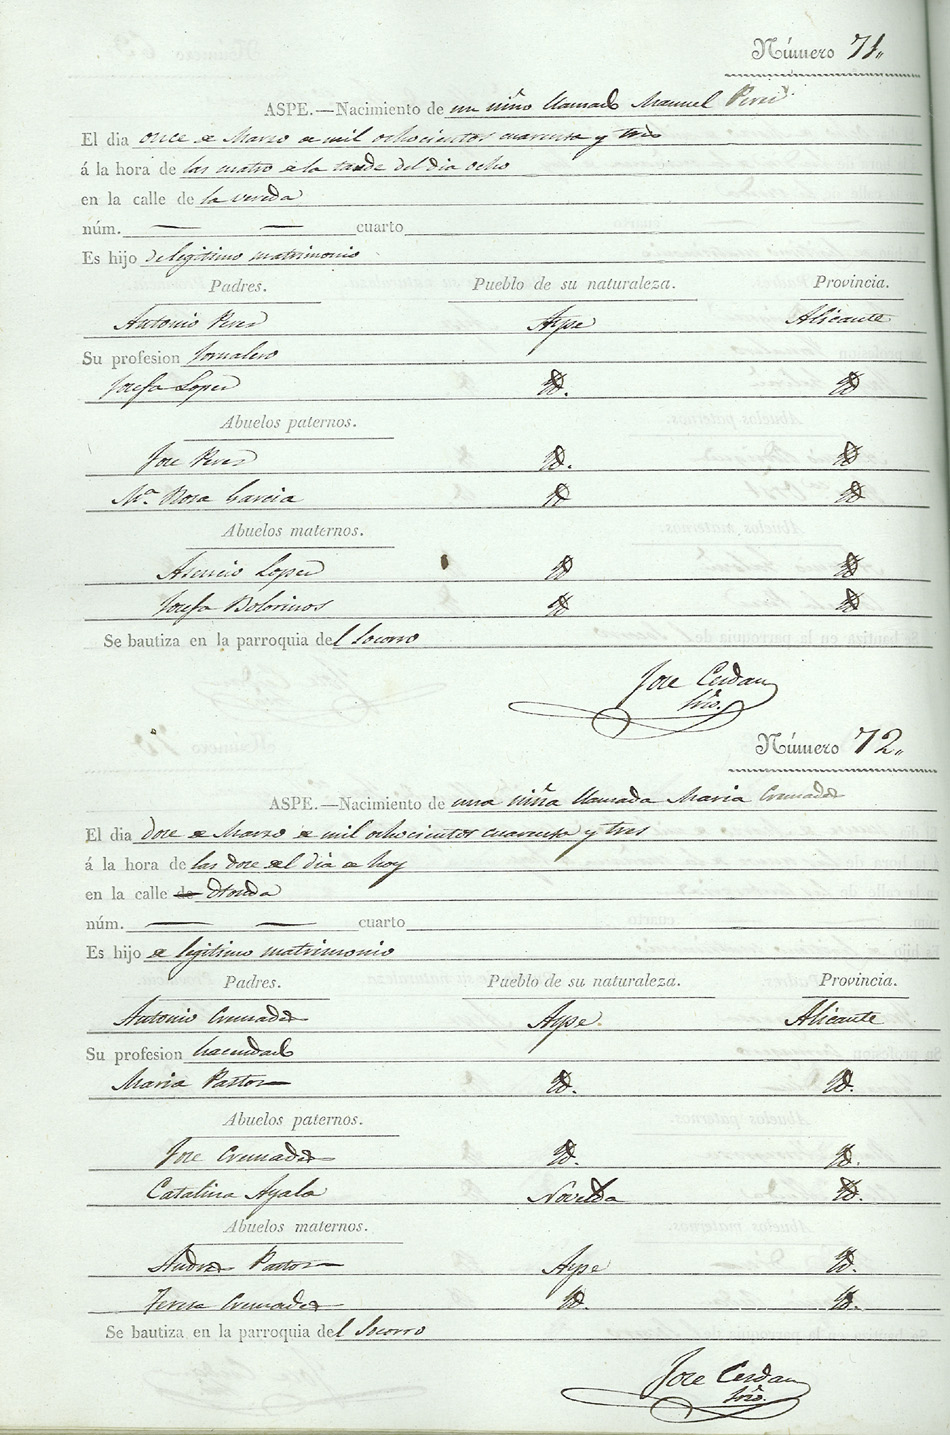 Número 71.
ASPE.—Nacimiento de un niño llamado Manuel Perez
El dia once de Marzo de mil ochocientos cuarenta y tres
á la hora de las cuatro de la tarde del dia ocho
en la calle de la vereda
núm. — — cuarto
Es hijo de legitimo matrimonio
Padres. Pueblo de su naturaleza. Provincia.
Antonio Perez Aspe Alicante
Su profesion Jornalero
Josefa Lopez Id. Id
Abuelos paternos.
Jose Perez Id. Id
Mª Rosa Garcia Id Id
Abuelos maternos.
Asencio Lopez Id Id
Josefa Bolorinos Id Id
Se bautiza en la parroquia del Socorro
Jose Cerdan
Srio.
Número 72.
ASPE.—Nacimiento de una niña llamada Maria Cremades
El dia doce de Marzo de mil ochocientos cuarenta y tres
á la hora de las doce del dia de hoy
en la calle de
núm. — — cuarto
Es hijo de legitimo matrimonio
Padres. Pueblo de su naturaleza. Provincia.
Antonio Cremades Aspe. Alicante
Su profesion hacendado
Maria Pastor Id. Id.
Abuelos paternos.
Jose Cremades Id. Id.
Catalina Ayala Novelda Id.
Abuelos maternos.
Andres Pastor Aspe Id.
Teresa Cremades Id. Id.
Se bautiza en la parroquia del Socorro
Jose Cerdan
Srio.